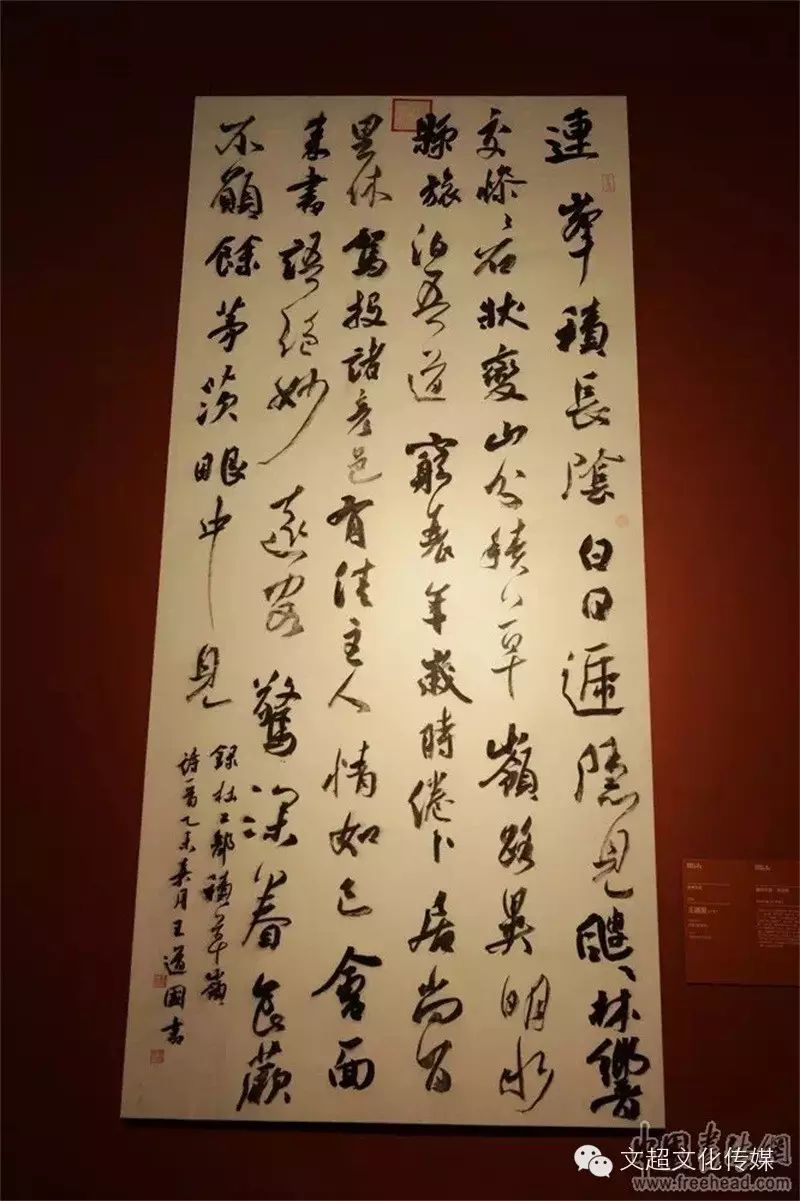 連峯積長陰白日遞隱見颼〻林響
交慘〻石狀變山分積草嶺路異明水
縣旅泊吾道窮衰年歲時倦卜居尚百
里休駕投諸彥邑有佳主人情如已會面
来書語絕妙遠客驚深眷食蕨
不願餘茅茨眼中見
錄杜工部積草嶺
詩一首乙未春月王道國書
中国书法網
文超文化传媒
www.freehead.com